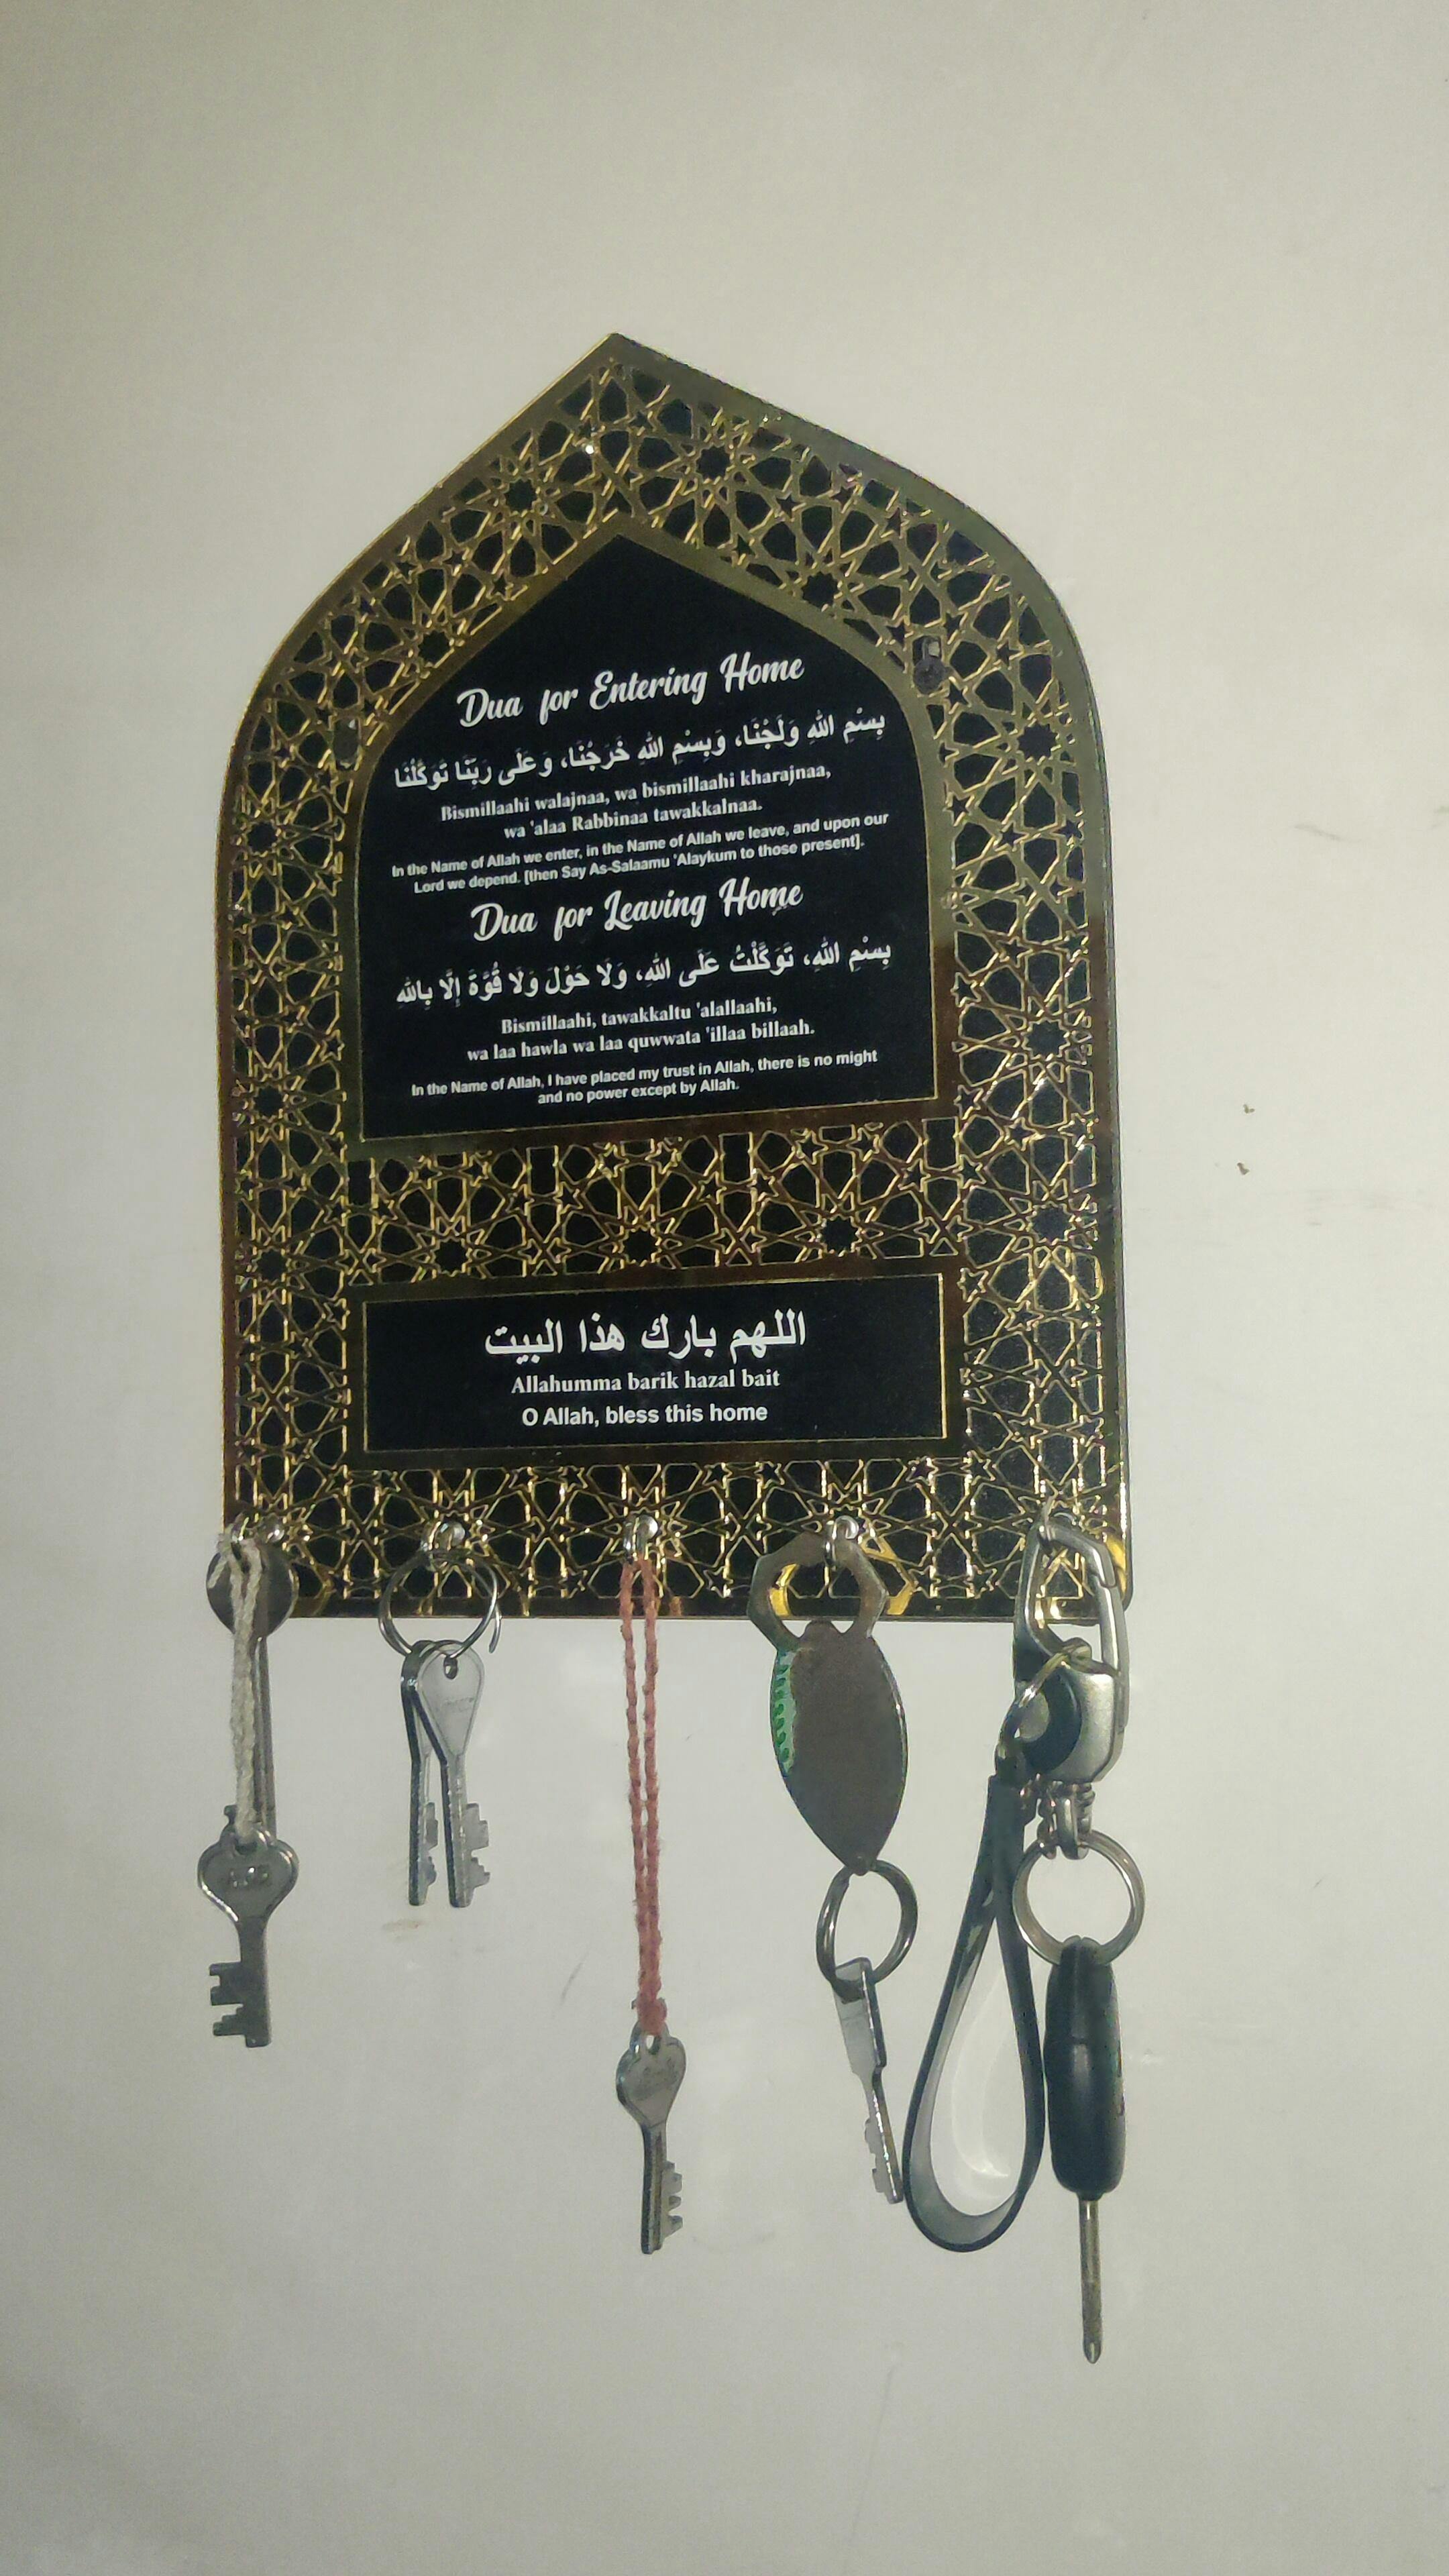 Dua for Entering Home
بِسْمِ اللهِ وَلَجْنَا، وَبِسْمِ اللهِ خَرَجْنَا، وَعَلَى رَبِّنَا تَوَكَّلْنَا
Bismillaahi walajnaa, wa bismillaahi kharajnaa,
wa 'alaa Rabbinaa tawakkalnaa.
In the Name of Allah we enter, in the Name of Allah we leave, and upon our
Lord we depend. [then Say As-Salaamu 'Alaykum to those present].
Dua for Leaving Home
بِسْمِ اللهِ، تَوَكَّلْتُ عَلَى اللهِ، وَلَا حَوْلَ وَلَا قُوَّةَ إِلَّا بِاللهِ
Bismillaahi, tawakkaltu 'alallaahi,
wa laa hawla wa laa quwwata 'illaa billaah.
In the Name of Allah, I have placed my trust in Allah, there is no might
and no power except by Allah.
اللهم بارك هذا البيت
Allahumma barik hazal bait
O Allah, bless this home